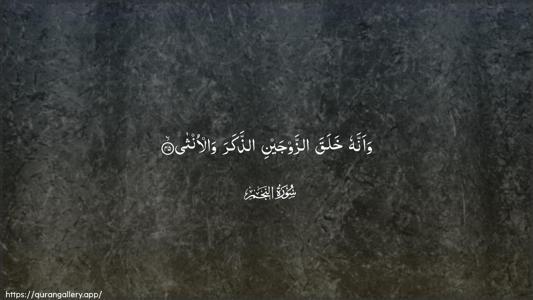 وَاَنَّهٗ خَلَقَ الزَّوْجَيْنِ الذَّكَرَ وَالْاُنْثٰىۙ۝۴۵
سُوْرَةُ النَّجْم
https://qurangallery.app/